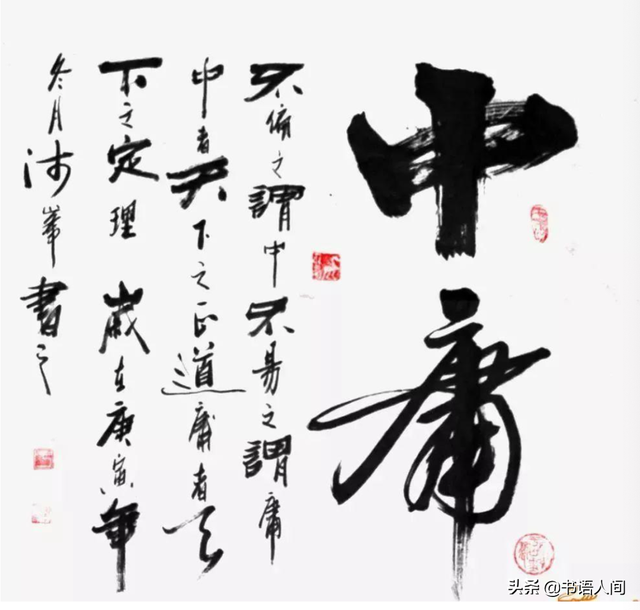 中庸
不偏之謂中不易之謂庸
中者天下之正道庸者天
下之定理 歲在庚寅年
冬月峯書之
头条 @书语人间